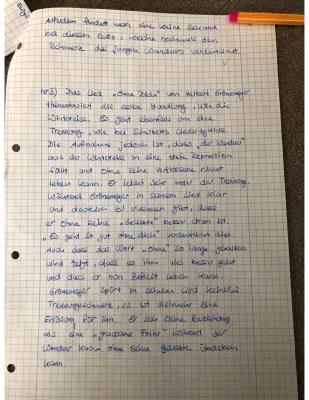 Außerdem findet man eine kleine Sekund
bei diesem Satz, welche nochmals den
Schmerz des jungen Wanderers verdeutlicht.
Nr3) Das Lied "Ohne Dich" von Herbert Grönemeyer
thematisiert die selbe Handlung, wie die
Winterreise. Es geht ebenfalls um eine
Trennung, wie bei Schuberts Liederzyklus.
Die Aufnahme jedoch ist, dass "der Wanderer"
aus der Winterreise in eine tiefe Depression
fällt und ohne seine nicht
leben kann. Er leidet sehr unter der Trennung.
Während Grönemeyer in seinem Lied klar
und deutlich zu erkennen gibt, dass
er ohne seine "Geliebte" besser dran ist.
"Es geht so gut ohne dich" verdeutlicht dies.
Auch dass das Wort "ohne" so lange gehalten
wird zeigt, dass es ihm viel besser geht
und dass er nun befreit leben kann.
Grönemeyer spürt in seinem Lied keinerlei
Trennungsschmerz, es ist vielmehr eine
Erlösung für ihn. Er sah seine Beziehung
als eine "grausame Folter" während der
Wanderer kaum ohne seine Geliebte
kann.